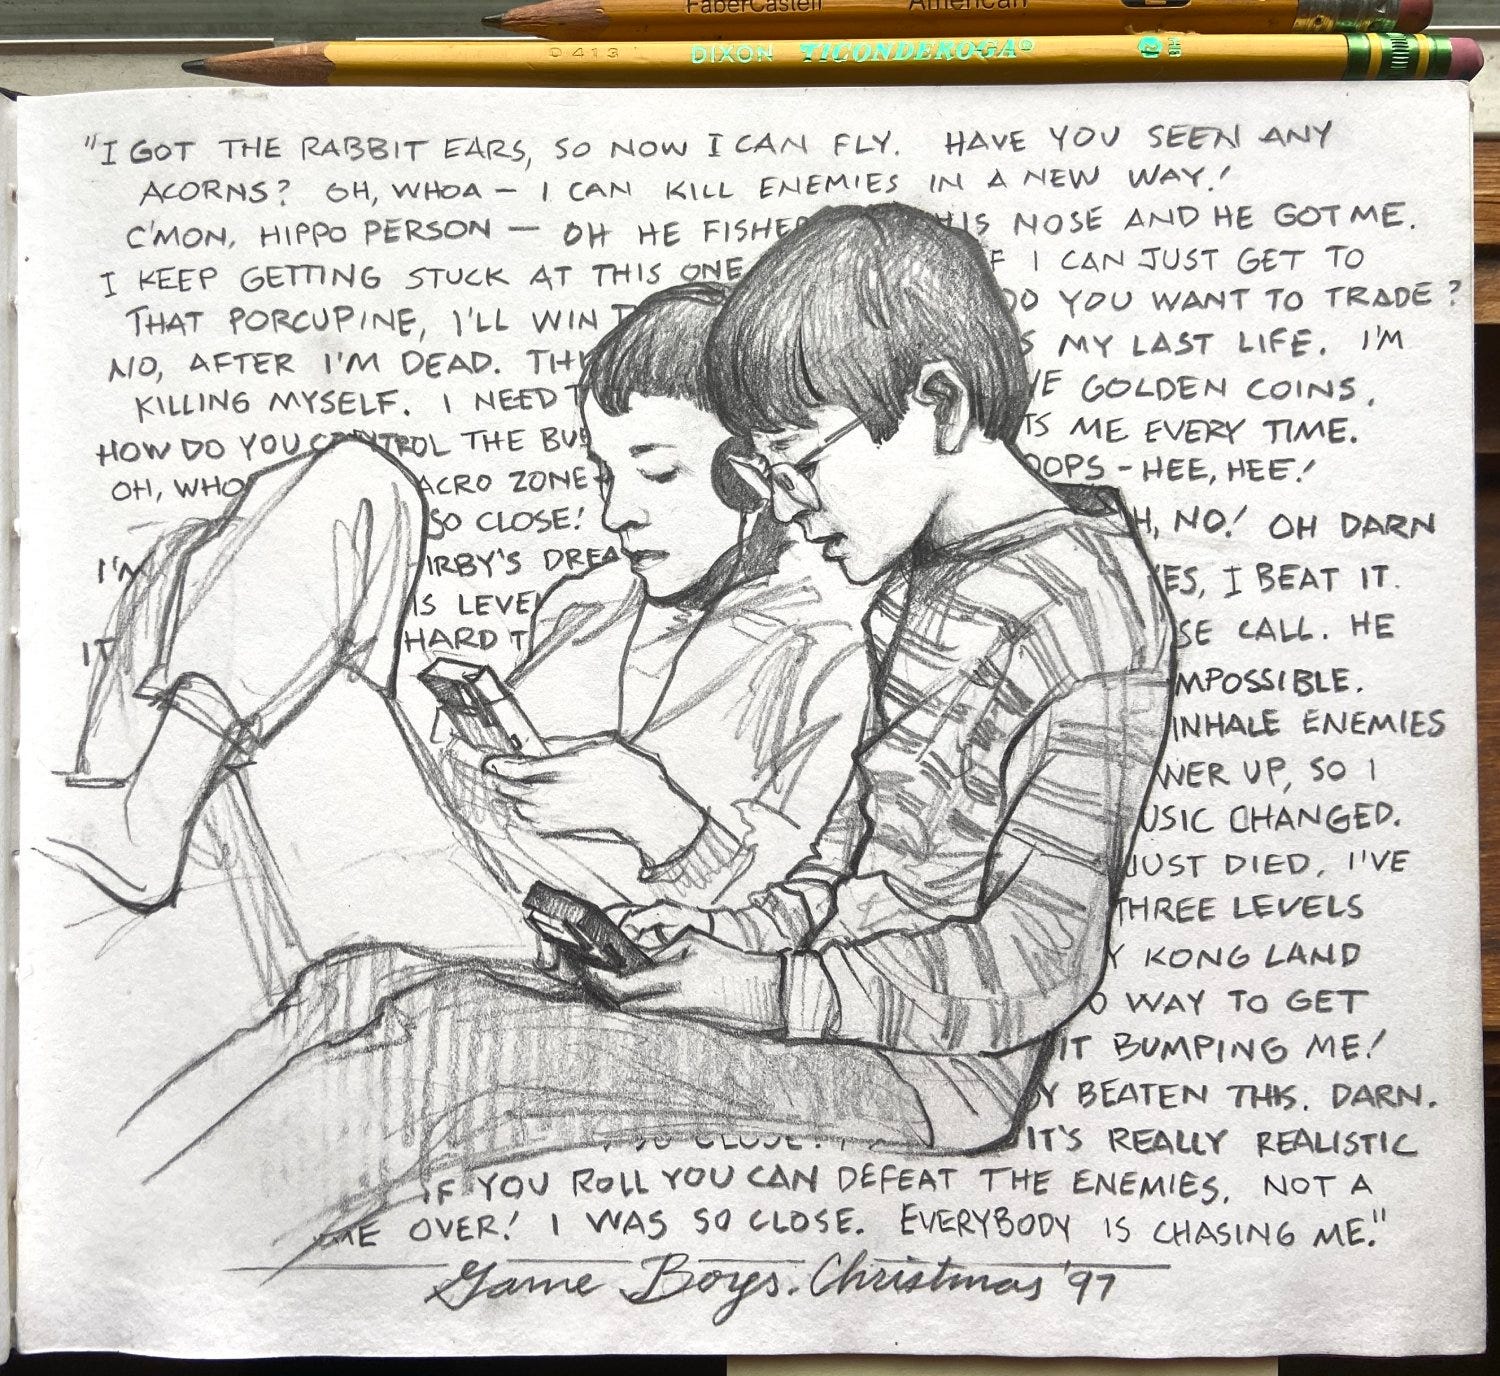 FaberCastell American
D 413 DIXON TICONDEROGA® 2 HB
"I GOT THE RABBIT EARS, SO NOW I CAN FLY. HAVE YOU SEEN ANY
ACORNS? OH, WHOA — I CAN KILL ENEMIES IN A NEW WAY!
C'MON, HIPPO PERSON — OH HE FISHE HIS NOSE AND HE GOT ME.
I KEEP GETTING STUCK AT THIS ONE F I CAN JUST GET TO
THAT PORCUPINE, I'LL WIN T DO YOU WANT TO TRADE?
NO, AFTER I'M DEAD. THI S MY LAST LIFE. I'M
KILLING MYSELF. I NEED T VE GOLDEN COINS.
HOW DO YOU CONTROL THE BU TS ME EVERY TIME.
OH, WHO ACRO ZONE OOPS - HEE, HEE!
SO CLOSE! H, NO! OH DARN
I'M IRBY'S DREA ES, I BEAT IT.
IS LEVEL SE CALL. HE
IT HARD T MPOSSIBLE.
INHALE ENEMIES
WER UP, SO I
USIC CHANGED.
JUST DIED. I'VE
THREE LEVELS
Y KONG LAND
O WAY TO GET
IT BUMPING ME!
Y BEATEN THIS. DARN.
SO CLOSE! IT'S REALLY REALISTIC
IF YOU ROLL YOU CAN DEFEAT THE ENEMIES. NOT A
ME OVER! I WAS SO CLOSE. EVERYBODY IS CHASING ME."
Game Boys. Christmas '97